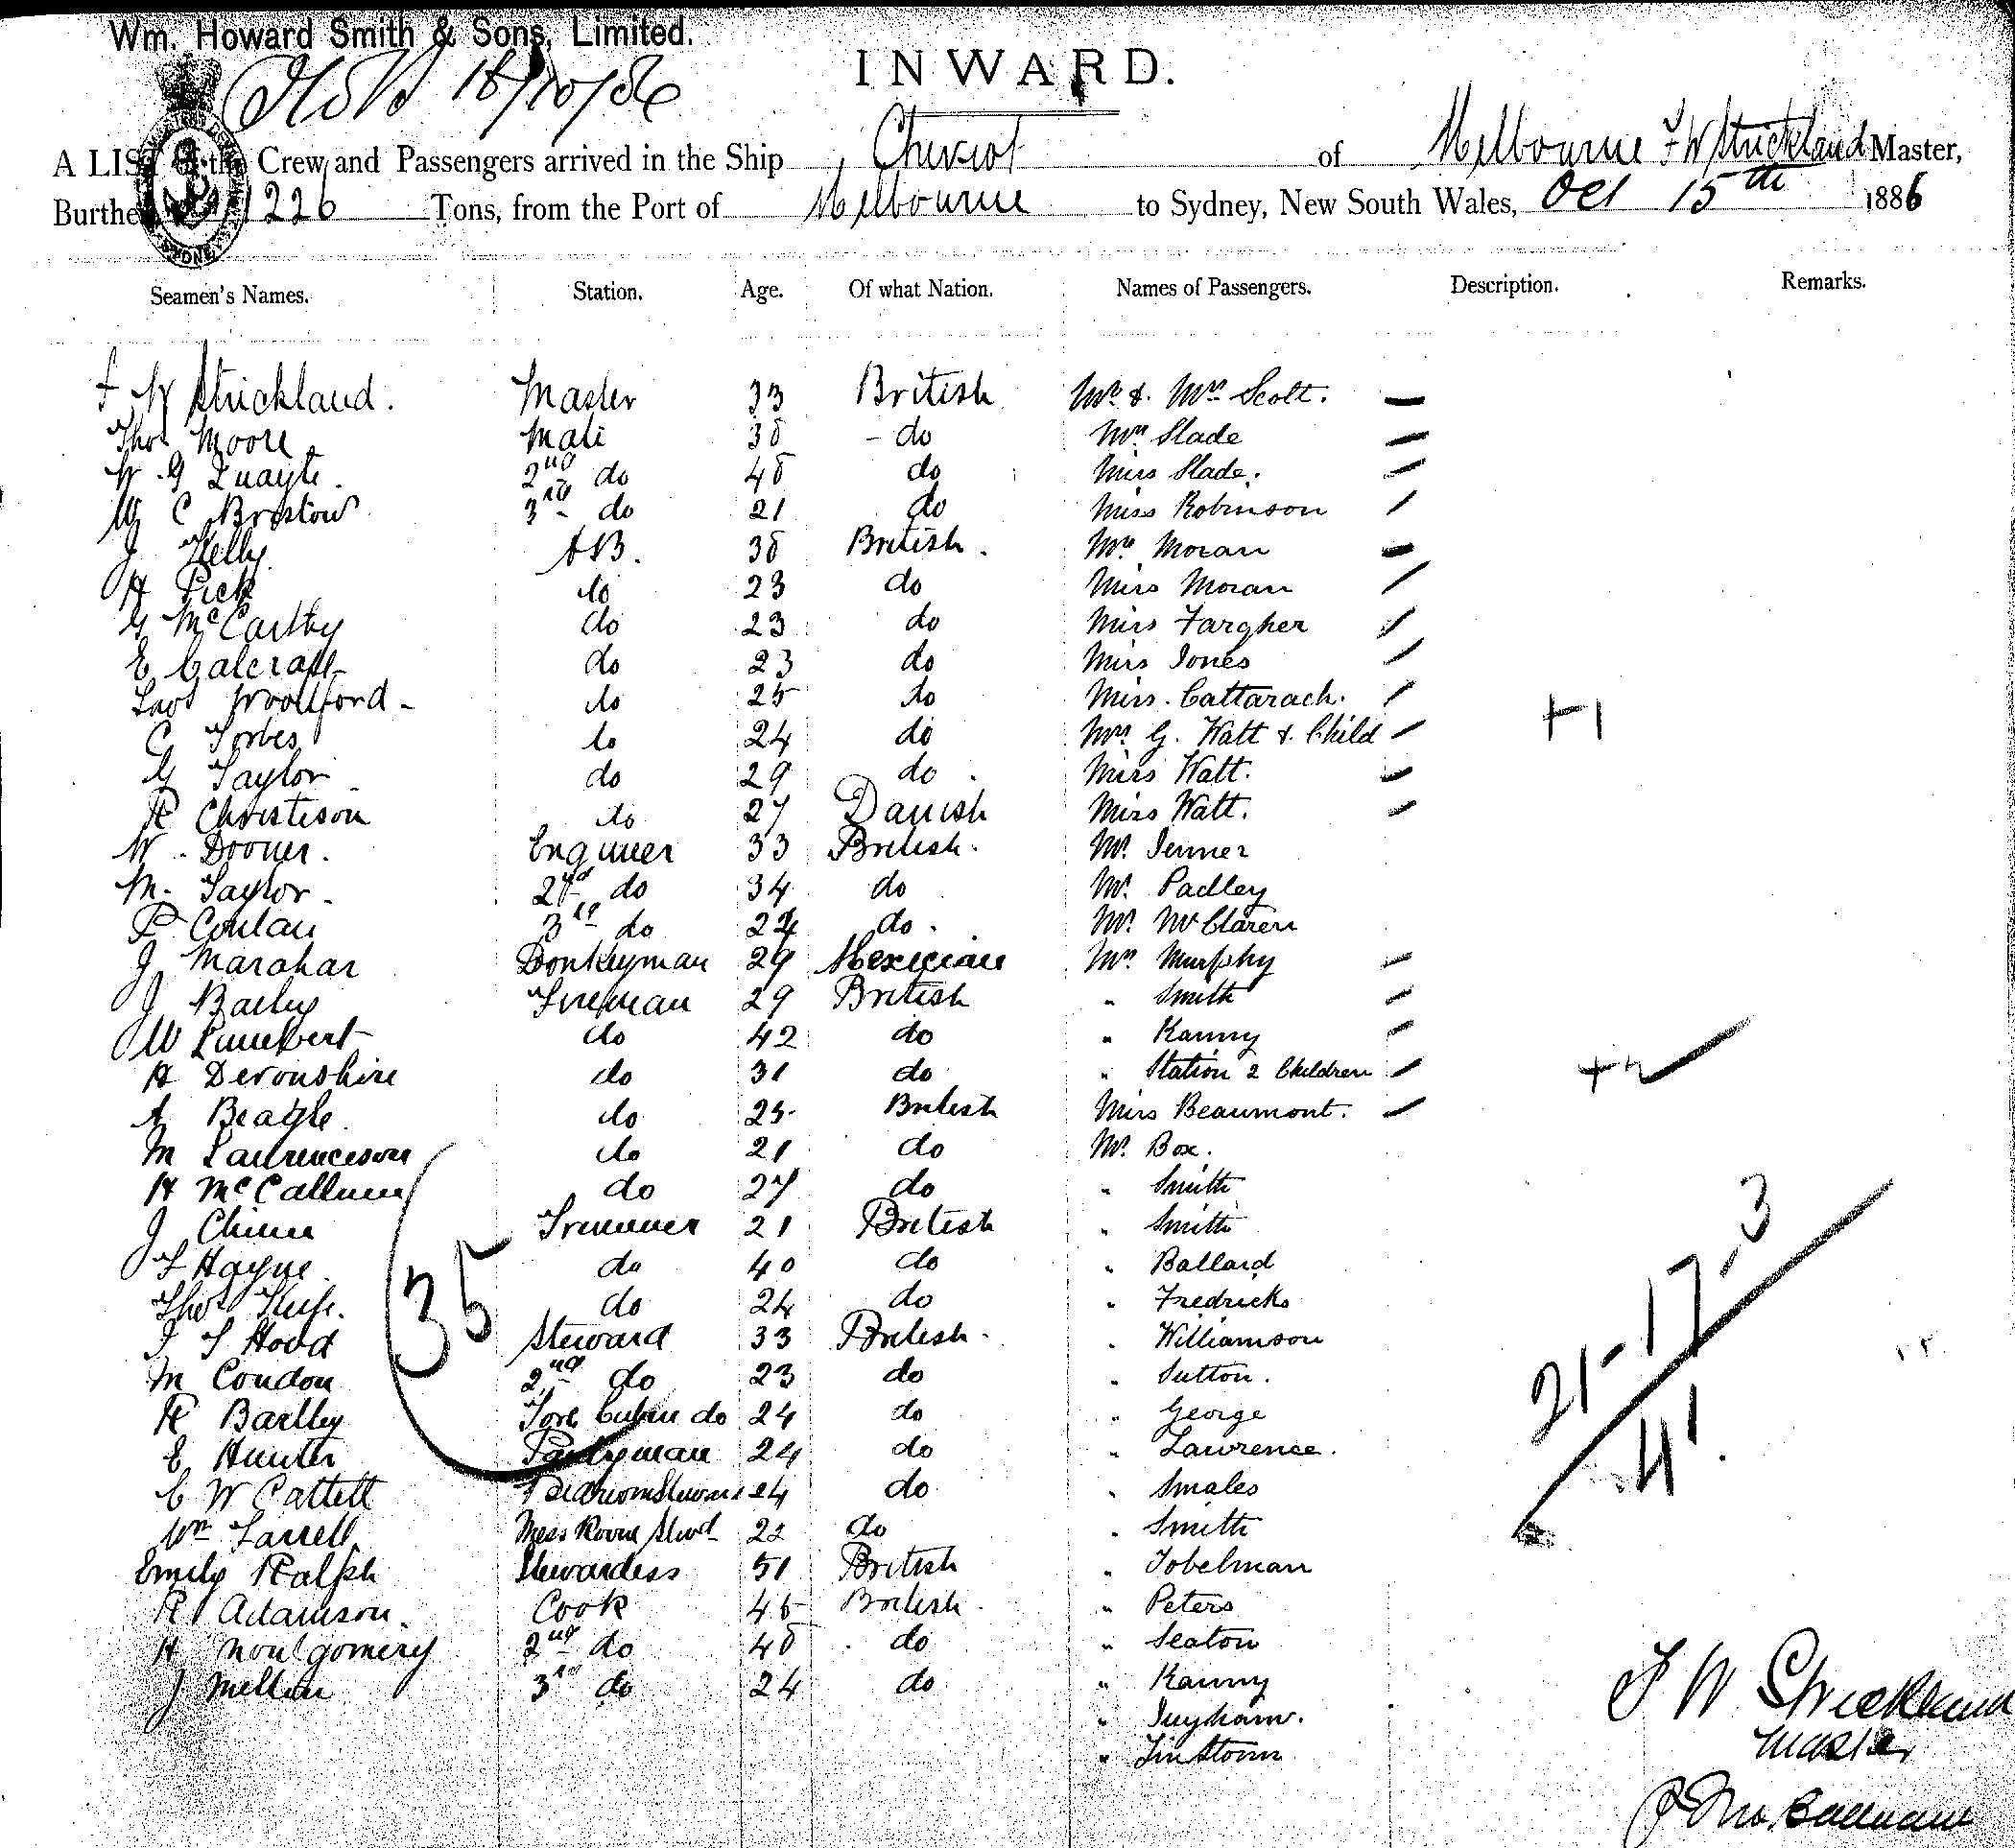 Wm. Howard Smith & Sons, Limited.
18/10/86
INWARD.
A LIST of the Crew and Passengers arrived in the Ship Cheviot of Melbourne F W Strickland Master,
Burthen 1226 Tons, from the Port of Melbourne to Sydney, New South Wales, Oct 15th 1886
Seamen's Names. Station. Age. Of what Nation. Names of Passengers. Description. Remarks.
F W Strickland. Master 33 British Mr & Mrs Scott.
Thos Moore Mate 38 do Mrs Slade
W. G Quayle. 2nd do 48 do Miss Slade.
W C Bristow 3rd do 21 do Miss Robinson
J Kelly. AB. 38 British. Mrs Moran
H Pick do 23 do Miss Moran
G McCarthy do 23 do Miss Fargher
E Calcraft do 23 do Miss Jones
Woodford do 25 do Miss. Cattarach.
C Forbes do 24 do Mrs G. Watt & Child +1
G Taylor do 29 do. Miss Watt.
R Christison do 27 Danish Miss Watt.
W. Dooner. Engineer 33 British. Mr. Jenner
M. Taylor. 2nd do 34 do Mr. Padley
P Conlan 3rd do 24 do. Mr. McClaren
J Marahar Donkeyman 29 Mexician Mrs Murphy
J Bailey Fireman 29 British " Smith
W do 42 do " Kanny
H Devonshire do 31 do " Station 2 Children +2
A Beagle. do 25 British Miss Beaumont.
M Laurenceson do 21 do Mr. Box.
H McCallum do 27 do " Smith
J Chinn Trimmer 21 British " Smith
F Hayne do 40 do " Ballard
Thos do 24 do " Fredricks
35
Hood Steward 33 British. " Williamson
M Condon 2nd do 23 do " Sutton.
R Bartley Fore Cabin do 24 do " George
E Hunter Pantryman 24 do " Lawrence.
C W Cattell 24 do " Smales
Wm Farrell Mess Room Stwd 22 do " Smith
Emily Ralph Stewardess 51 British " Tobelman
R Adamson. Cook 45 British. " Peters
H Montgomery 2nd do 48 do " Seaton
J Mellin 3rd do 24 do " Kanny
21-17-3
41
" Tinstonn
F W Strickland
Master